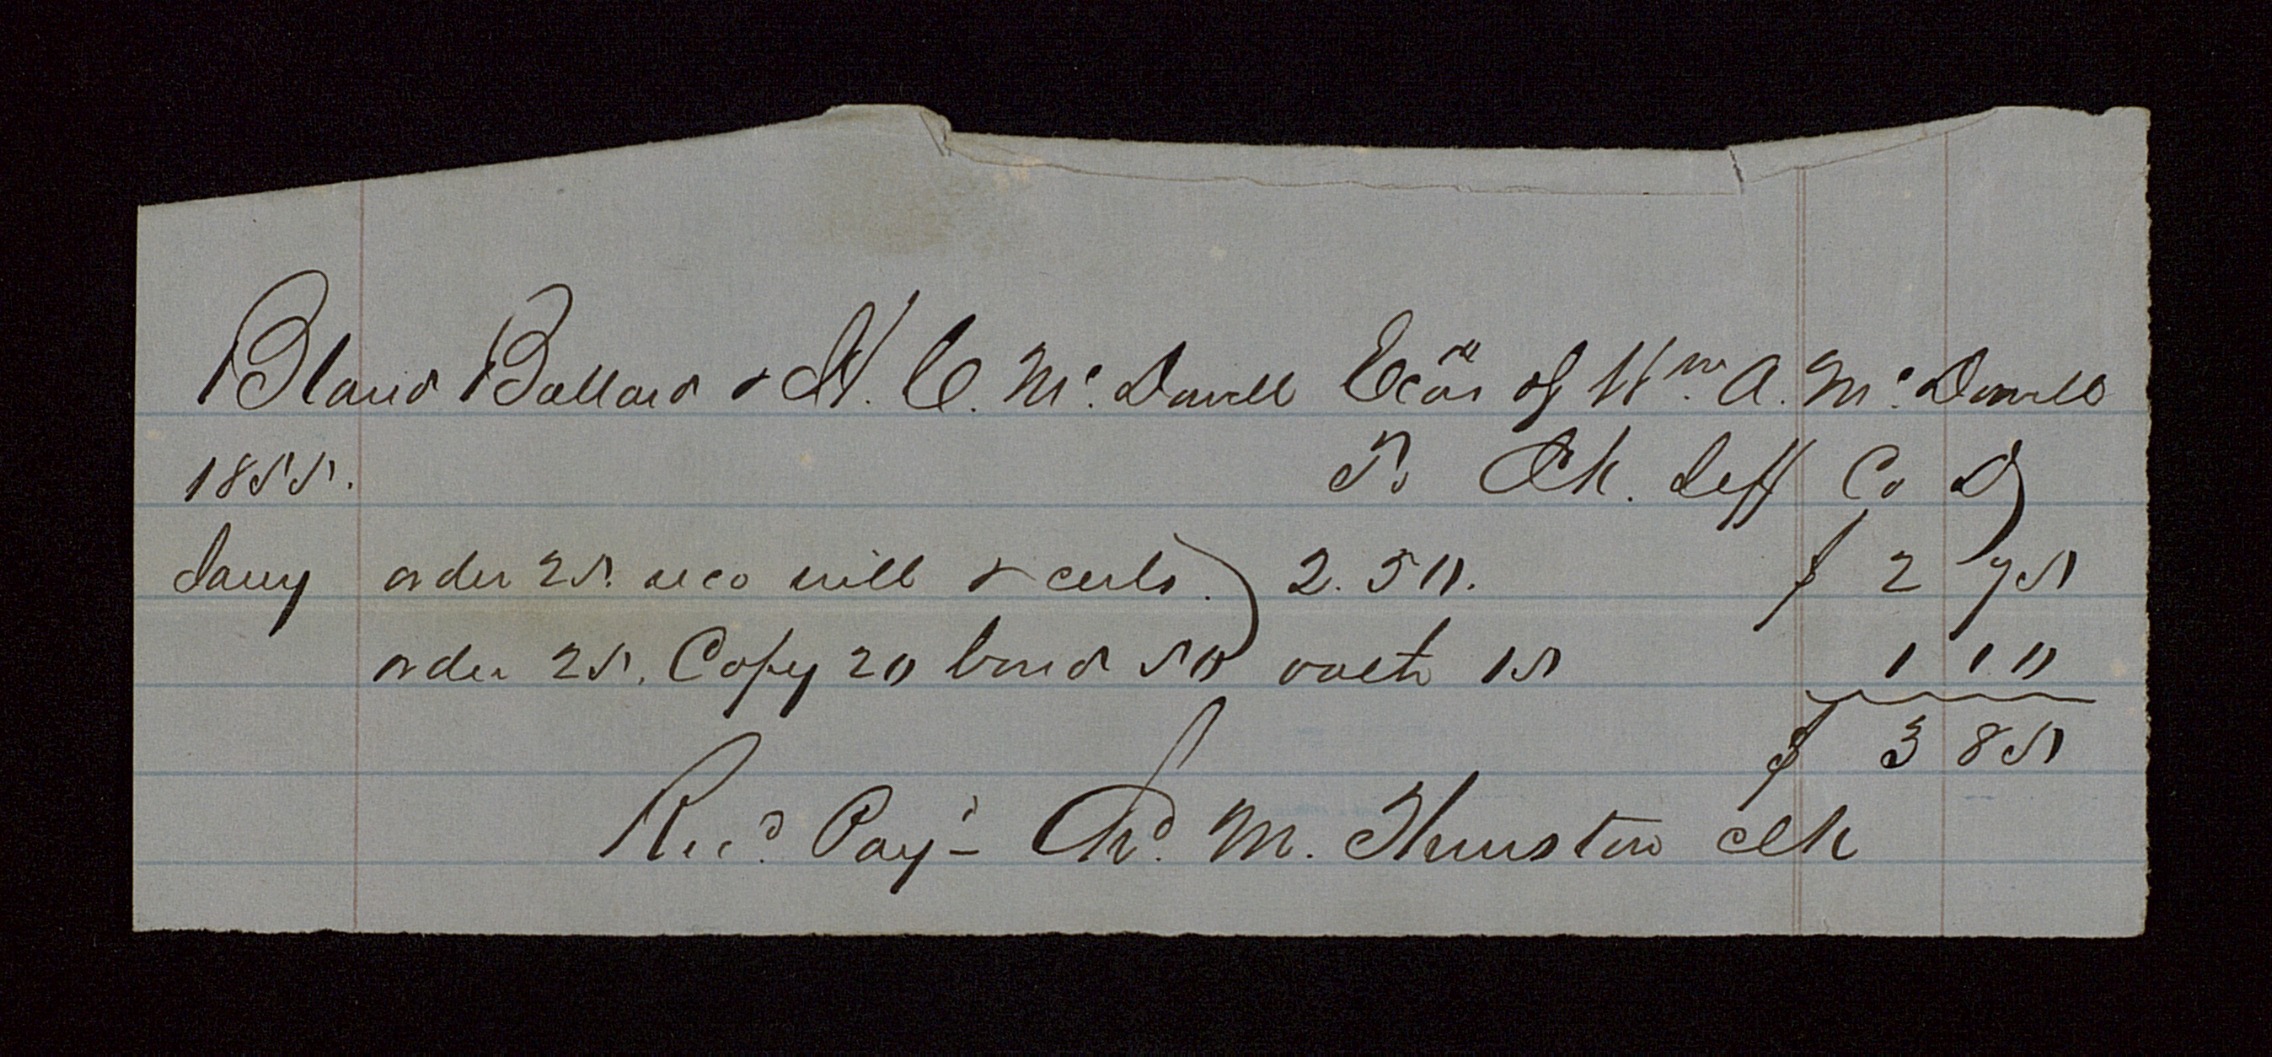 Bland Ballard & H. C. McDowell Ecors of Wm. A. McDowell
1855. To Clk. Jeff Co Dr
Jany order 25. reco will & certs. 2.50. $ 2 75
order 25. Copy 20 bond 50 oath 15 1 10
$ 3 85
Recd. Payt- Chs. M. Thruston Clk